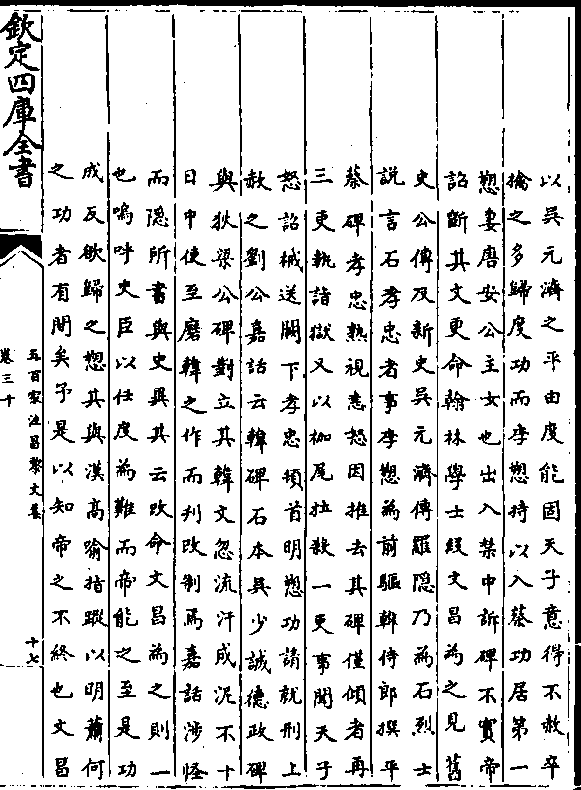 以吳元濟之平由度能固天子意得不赦卒
擒之多歸度功而李愬特以入蔡功居第一
愬妻唐安公主女也出入禁中訴碑不實帝
詔斷其文更命翰林學士段文昌為之見舊
史公傳及新史吳元濟傳羅隠乃為石烈士
說言石孝忠者事李愬為前驅韓侍郎撰平
蔡碑孝忠熟視恚怒因推去其碑僅傾者再
三吏執詣獄又以枷尾拉殺一吏事聞天子
怒詔械送闕下孝忠頓首明愬功請就刑上
赦之劉公嘉話云韓碑石本吳少誠德政碑
與狄梁公碑對立其韓文忽流汗成泥不十
日中使至磨韓之作而刋改制焉嘉話涉怪
而隠所書與史異其云改命文昌為之則一
也嗚呼史臣以任度為難而帝能之至是功
成反欲歸之愬其與漢高喻指蹤以明蕭何
之功者有間矣予是以知帝之不終也文昌
欽定四庫全書
五百家注昌黎文集
卷三十
十七